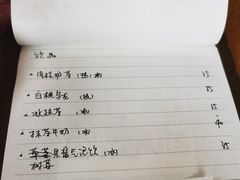 饮品
·肉桂奶茶(热,冰) 35
·白桃乌龙 35
·冰抹茶(冰) 35
·抹茶牛奶(冰) 40
草莓 气泡饮(冰)
树莓